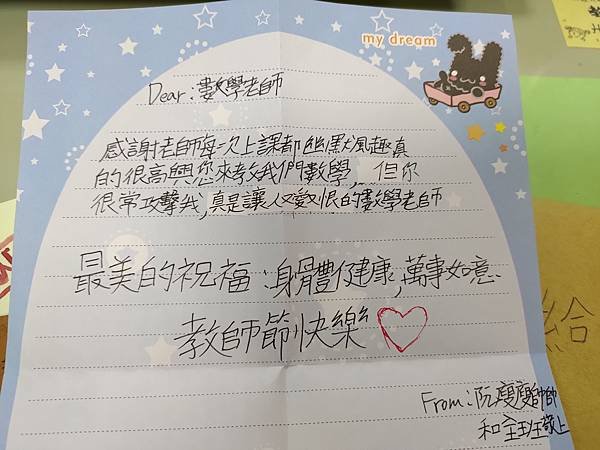 my dream
Dear:數學老師
感謝老師每次上課都幽默風趣真
的很高興您來教我們數學,但你
很常攻擊我,真是讓人又愛又恨的數學老師
最美的祝福:身體健康,萬事如意.
教師節快樂
From:阮
和全班敬上
給